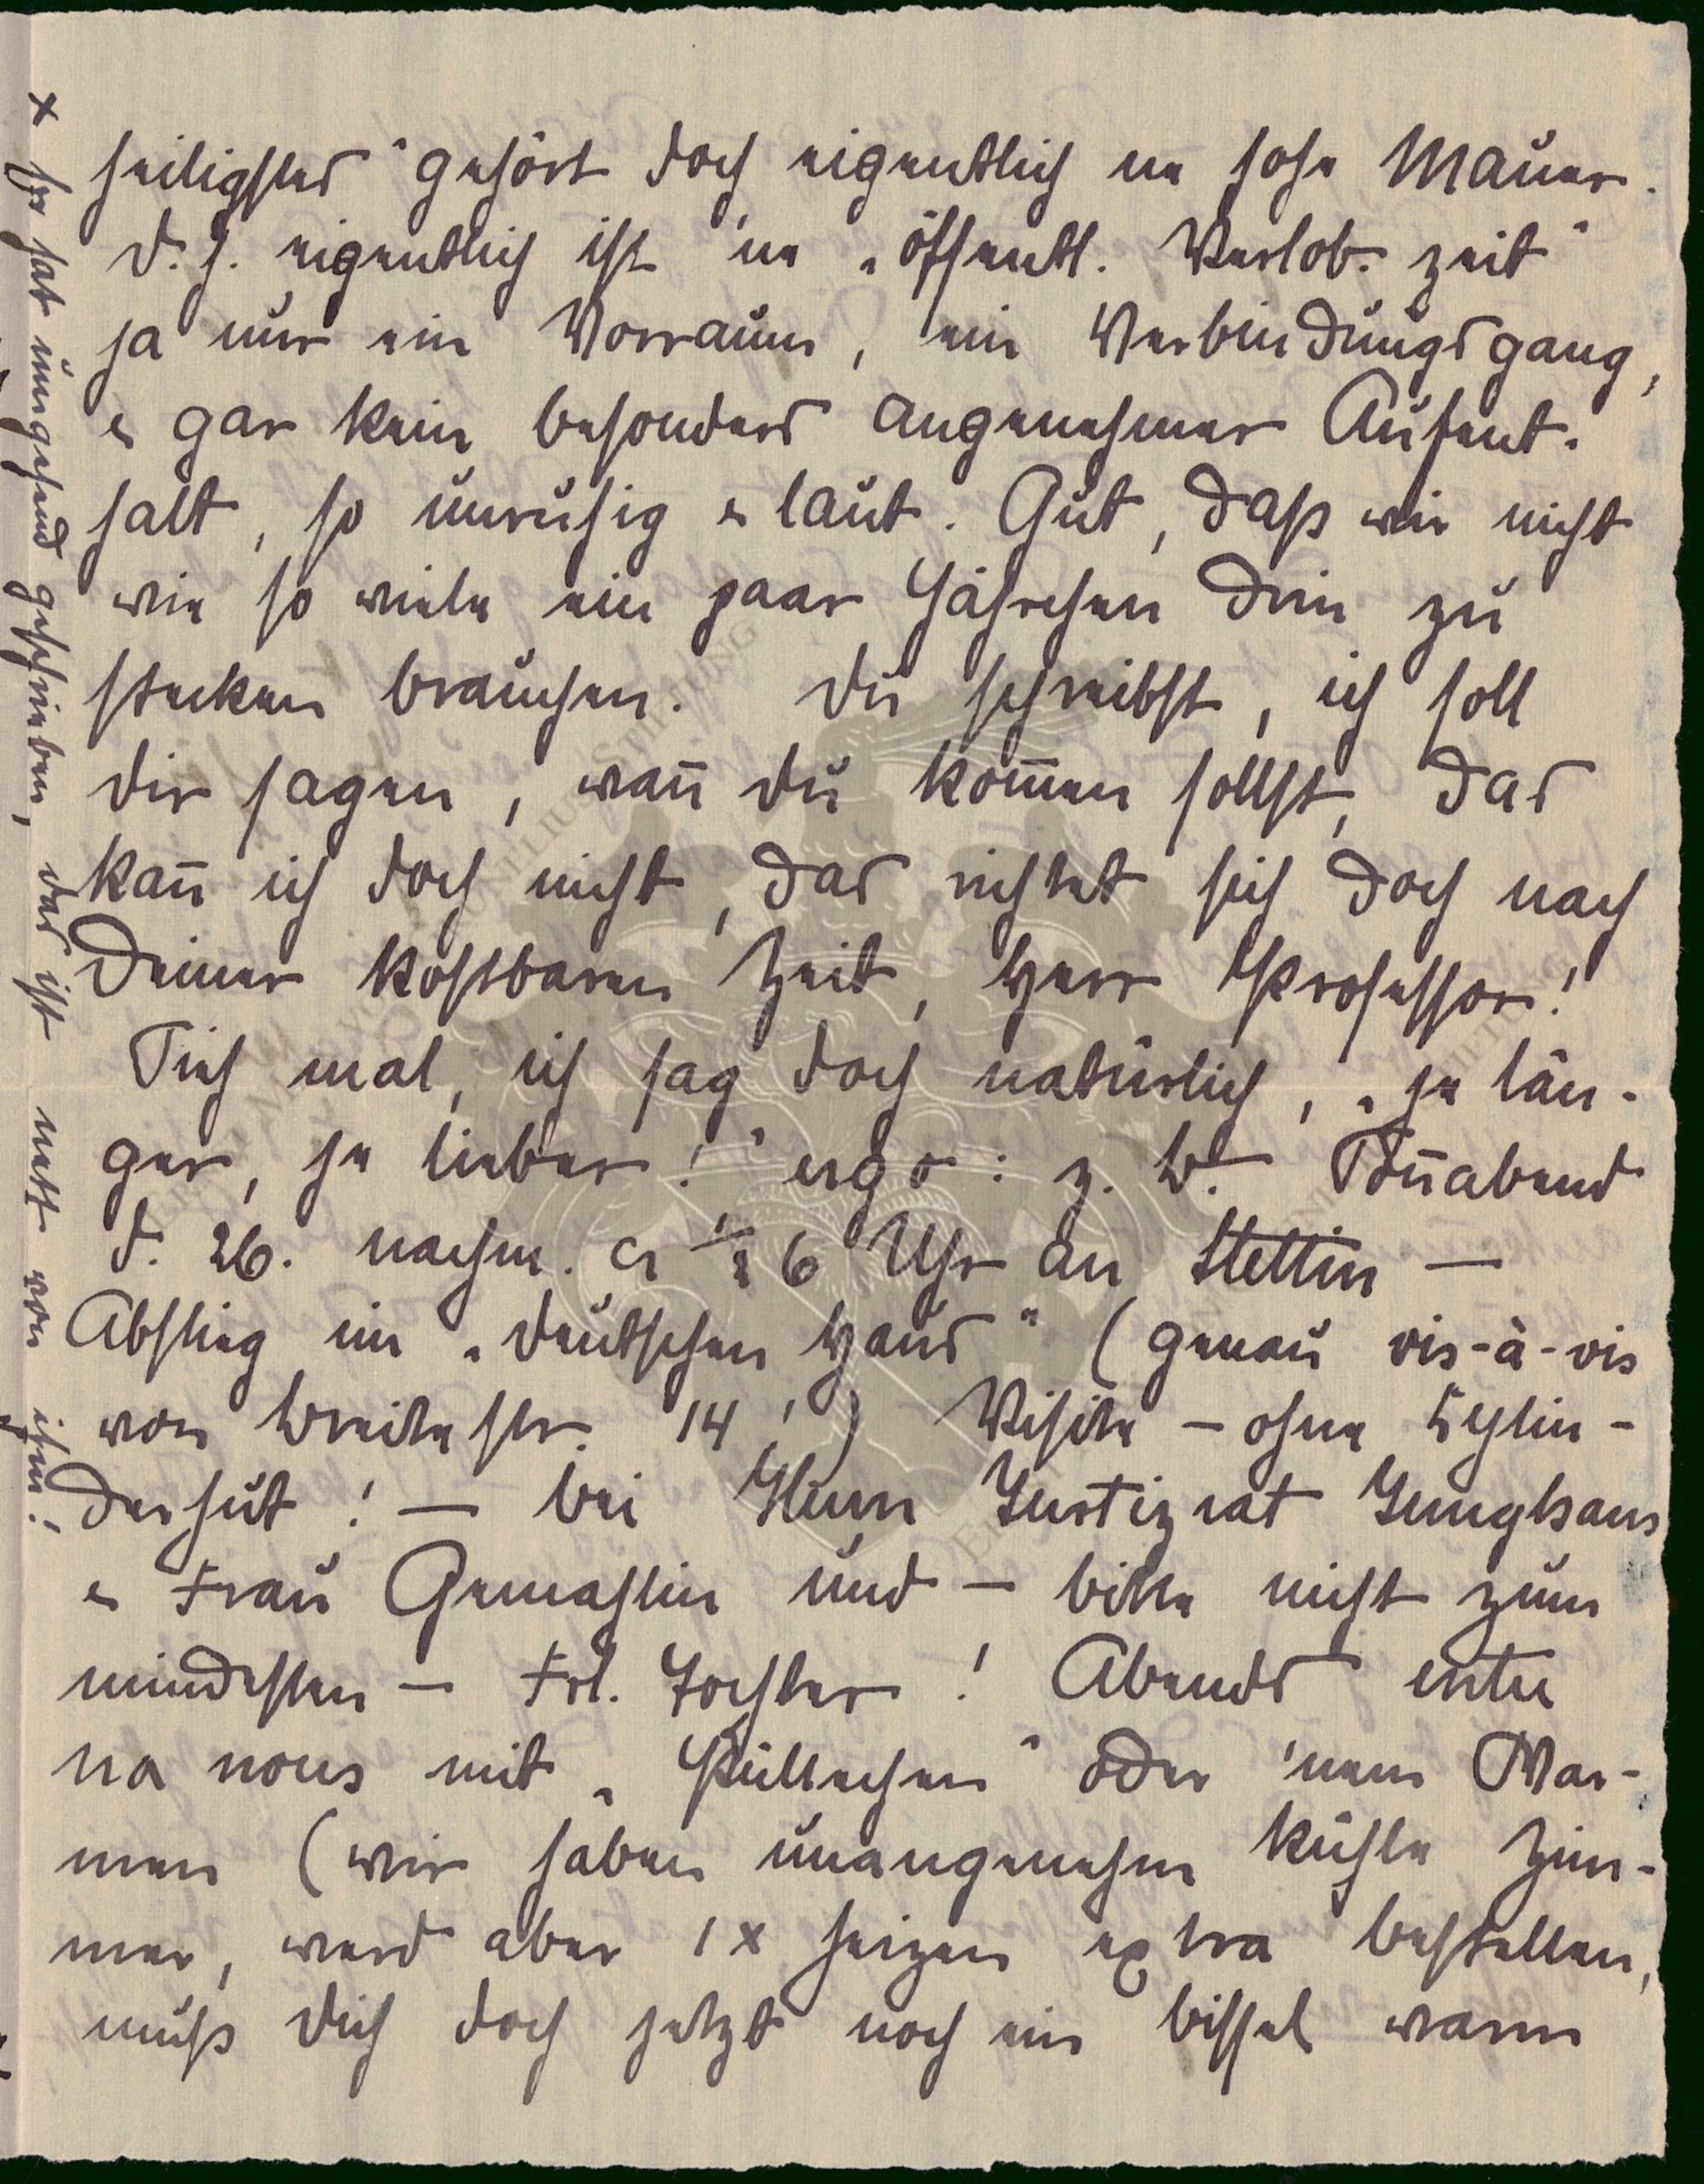 heiligstes" gehört doch eigentlich ne hohe Mauer.
d. h. eigentlich ist 'ne „öffentl. Verlob. zeit"
ja nur ein Vorraum, ein Verbindungsgang,
& gar kein besonders angenehmer Aufent-
halt, so unruhig & laut. Gut, daß wir nicht
wie so viele ein paar Jährchen drin zu
stecken brauchen. Du schreibst, ich soll
dir sagen, wañ du kom̄en sollst, das
kañ ich doch nicht, das richtet sich doch nach
Deiner kostbaren Zeit, Herr Professor!
Sieh mal, ich sag doch natürlich, „je län-
ger, je lieber!" ergo: z. B. Soñabend
d. 26. nachm. ca ½ 6 Uhr an Stettin —
Abstieg im „deutschen Haus" (genau vis-à-vis
von Breitestr. 14!) Visite – ohne Cylin-
derhut! — bei Herrn Justizrat Junghans
& Frau Gemahlin und – bitte nicht zum
mindesten – Frl. Tochter! Abends entre
na nous mit „Püllechen" oder 'nem War-
men (wir haben unangenehm kühle Zim-
mer, werd aber 1 x heizen extra bestellen,
muß dich doch jetzt noch ein bissel warm
x Er hat umgehend geschrieben, das ist nett von ihm!